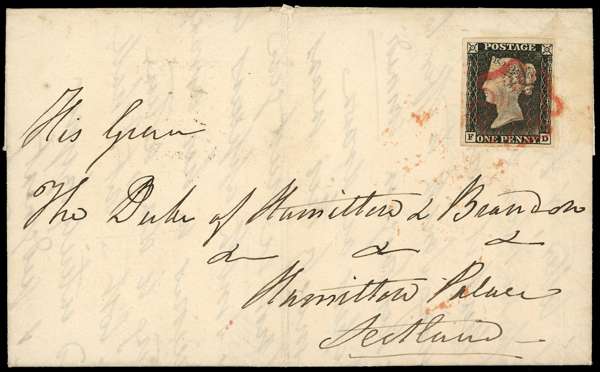 POSTAGE
F D
ONE PENNY
His Grace
The Duke of Hamilton & Brandon
& & &
Hamilton Palace
Scotland